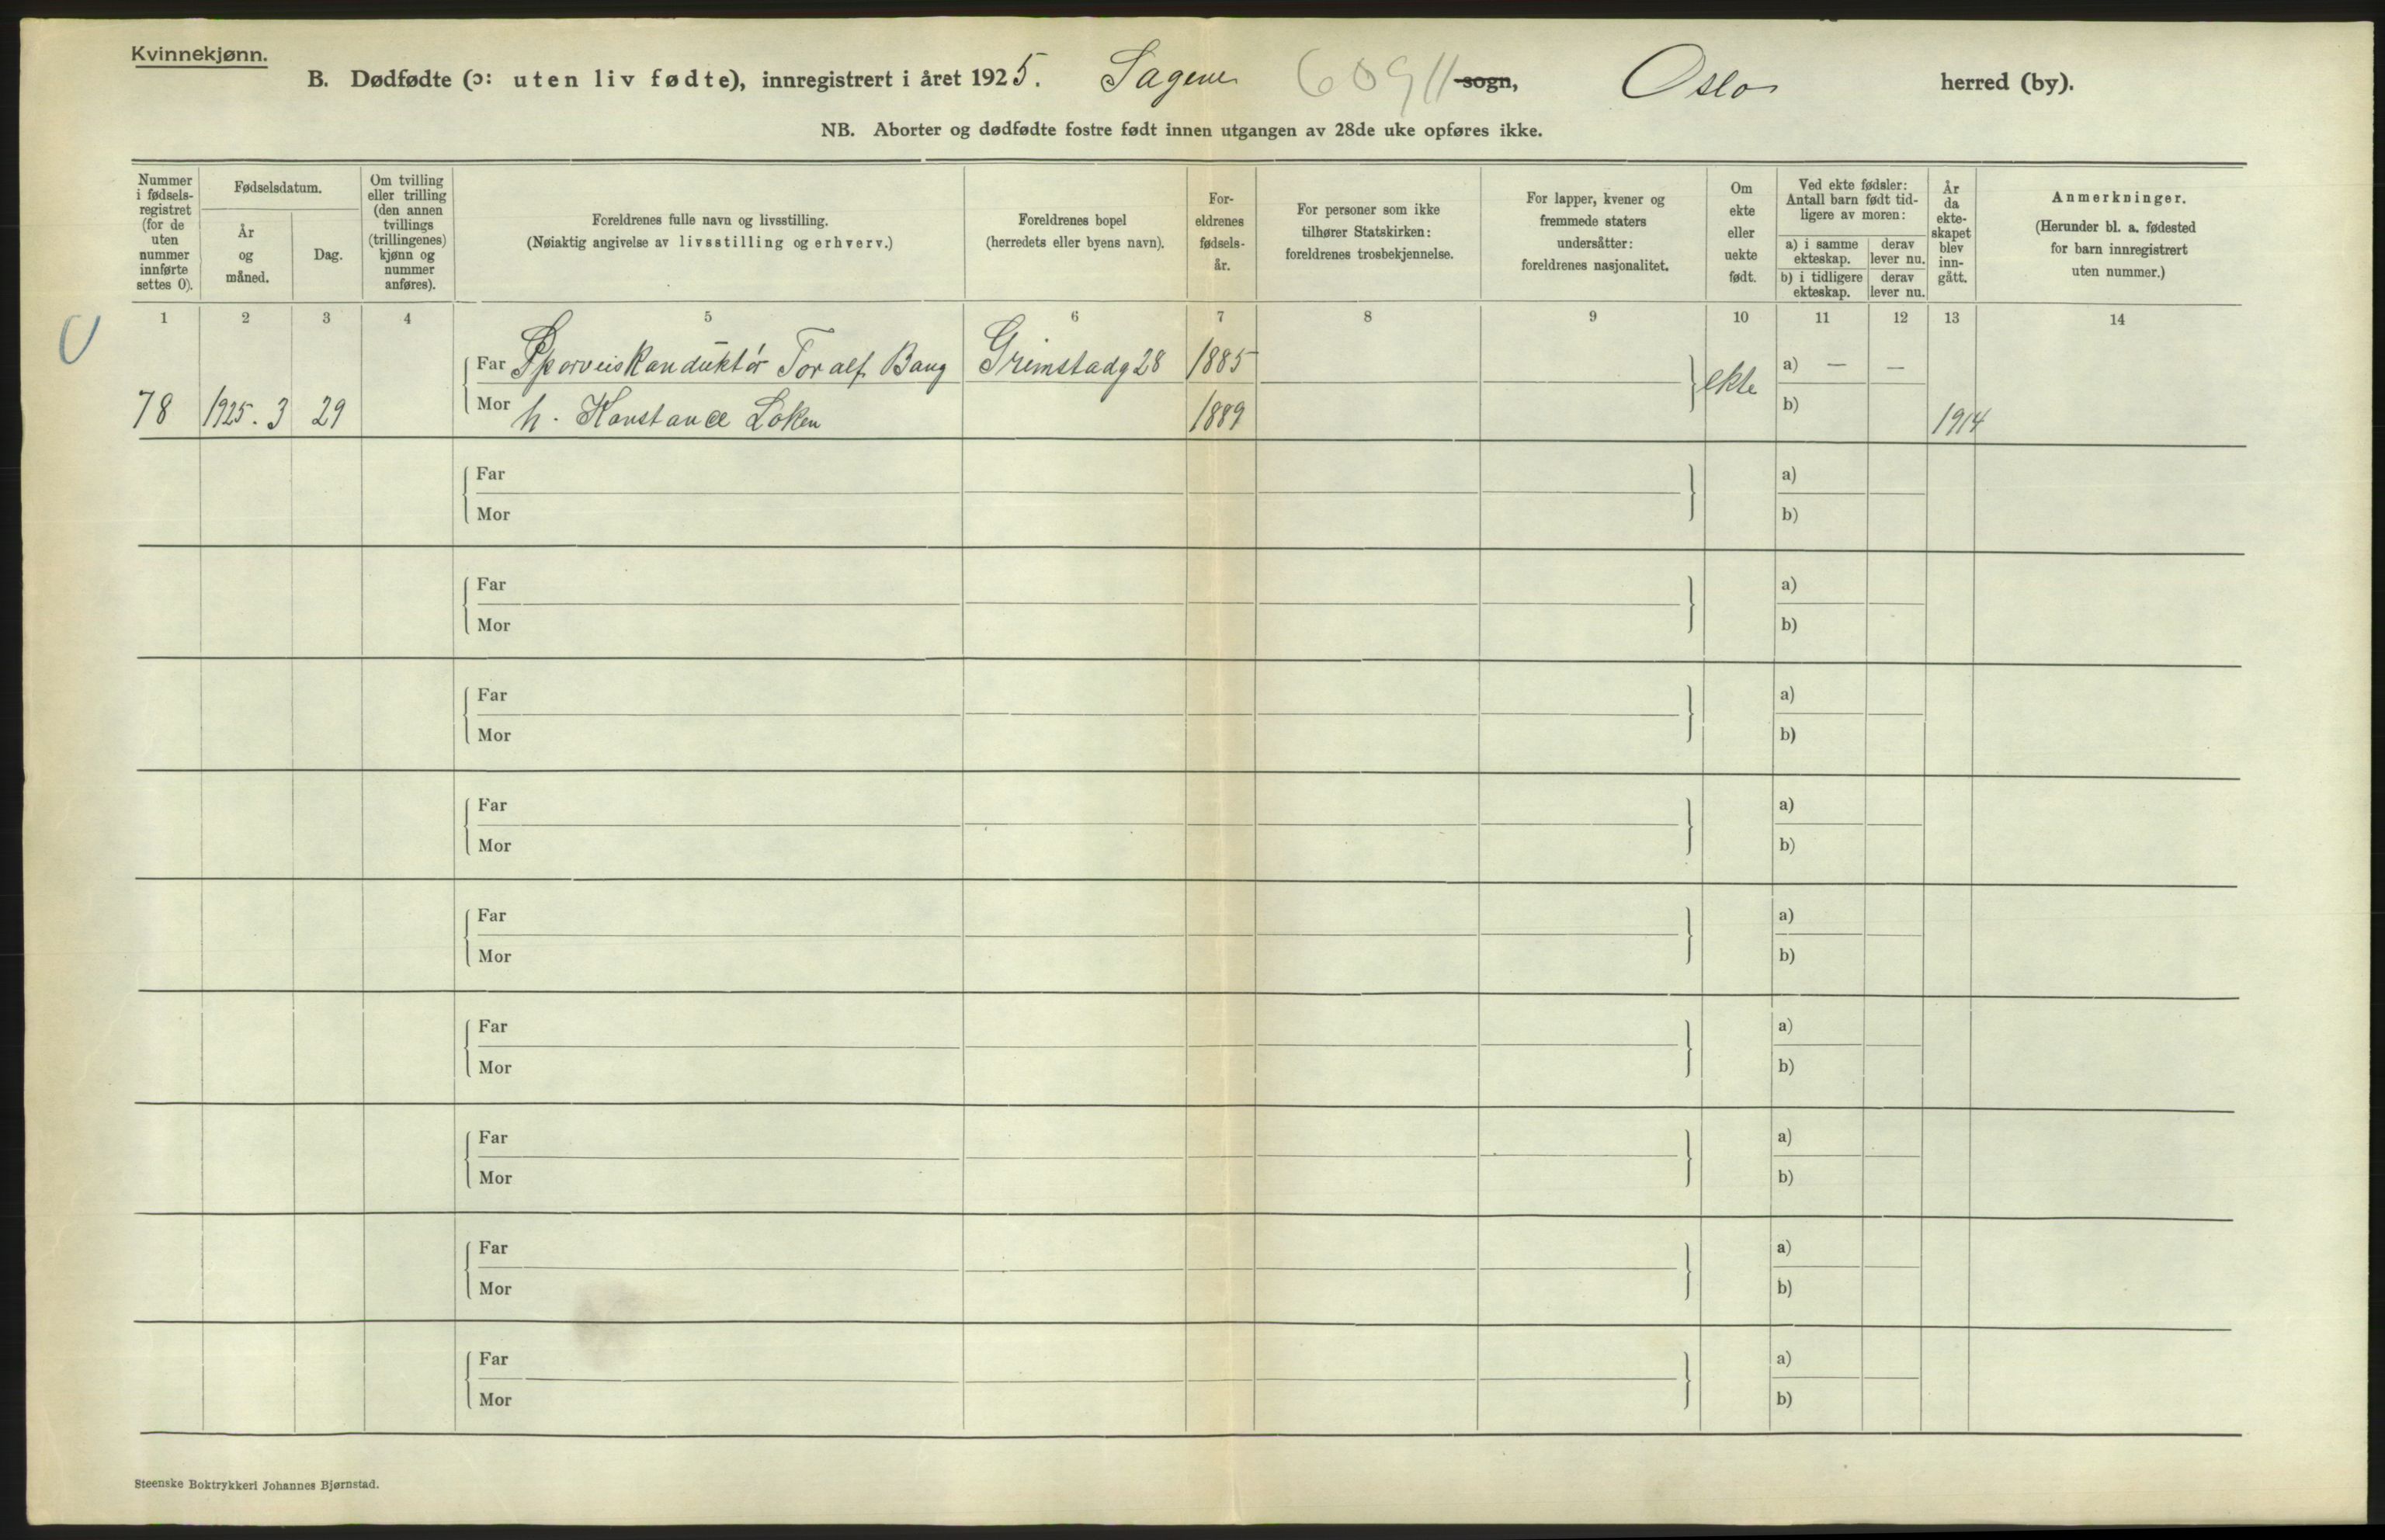 Kvinnekjønn.
B. Dødfødte (ɔ: uten liv fødte), innregistrert i året 1925. Sagene 609 11 sogn, Oslo herred (by).
NB. Aborter og dødfødte fostre født innen utgangen av 28de uke opføres ikke.
Nummer i fødsels-registret (for de uten nummer innførte settes 0).
Fødselsdatum.
År og måned.
Dag.
Om tvilling eller trilling (den annen tvillings (trillingenes) kjønn og nummer anføres).
Foreldrenes fulle navn og livsstilling.
(Nøiaktig angivelse av livsstilling og erhverv.)
Foreldrenes bopel
(herredets eller byens navn).
For-eldrenes fødsels-år.
For personer som ikke tilhører Statskirken: foreldrenes trosbekjennelse.
For lapper, kvener og fremmede staters undersåtter: foreldrenes nasjonalitet.
Om ekte eller uekte født.
Ved ekte fødsler: Antall barn født tid-ligere av moren:
a) i samme ekteskap.
derav lever nu.
b) i tidligere ekteskap.
derav lever nu.
År da ekte-skapet blev inn-gått.
Anmerkninger.
(Herunder bl. a. fødested for barn innregistrert uten nummer.)
1 2 3 4 5 6 7 8 9 10 11 12 13 14
Far Sporveiskonduktør Toralf Bang Grimstadg 28 1885 a) — —
78 1925. 3 29 Mor h. Konstance Løken 1889 ekte b) 1914
Far a)
Mor b)
Far a)
Mor b)
Far a)
Mor b)
Far a)
Mor b)
Far a)
Mor b)
Far a)
Mor b)
Far a)
Mor b)
Far a)
Mor b)
Far a)
Mor b)
Steenske Boktrykkeri Johannes Bjørnstad.